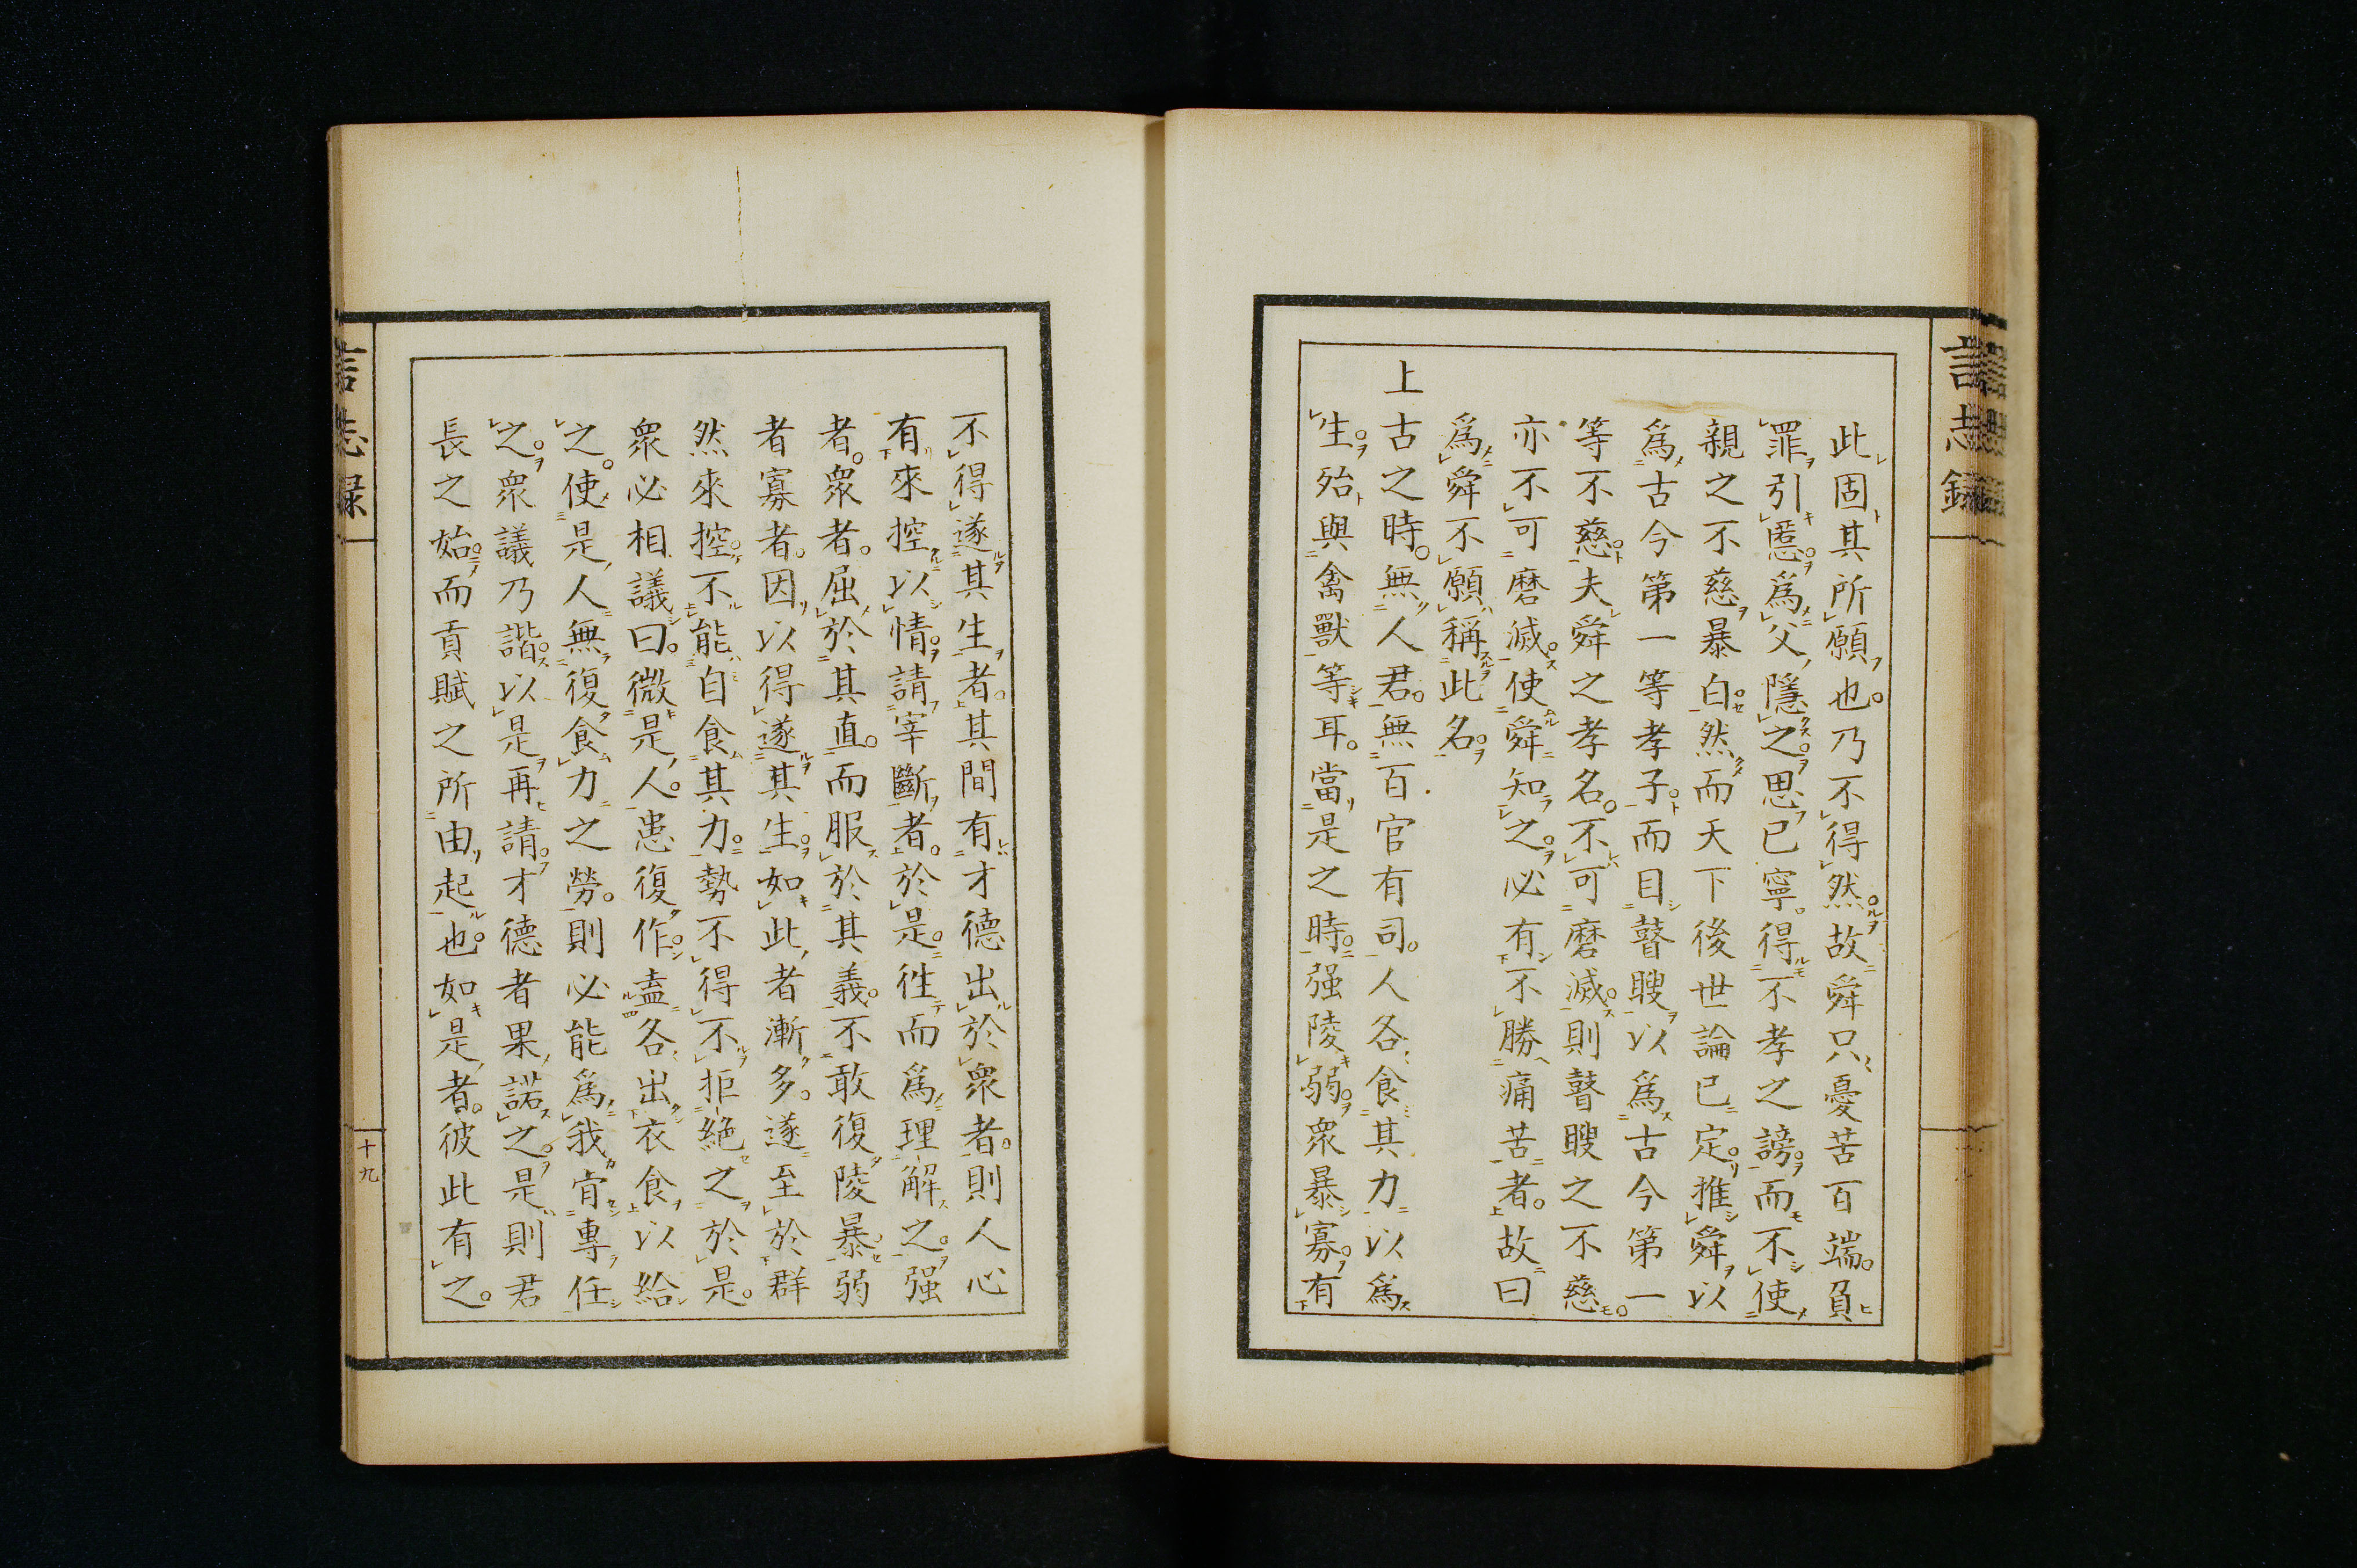 言志録
此固其所願也。乃不得然。故舜只憂苦百端。負
罪引慝。爲父隱之。思已寧得不孝之謗。而不使
親之不慈暴白。然而天下後世論已定。推舜以
爲古今第一等孝子。而目瞽瞍以爲古今第一
等不慈。夫舜之孝名。不可磨滅。則瞽瞍之不慈。
亦不可磨滅。使舜知之。必有不勝痛苦者。故曰
爲舜不願稱此名。
上古之時。無人君。無百官有司。人各食其力以爲
生。殆與禽獸等耳。當是之時。强陵弱。衆暴寡。有
不得遂其生者。其間有才德出於衆者。則人心
有來控以情。請宰斷者。於是。徃而爲理解之。强
者。衆者。屈於其直。而服於其義。不敢復陵暴弱
者寡者。因以得遂其生。如此者漸多。遂至於群
然來控。不能自食其力。勢不得不拒絶之。於是。
衆必相議曰。微是人。患復作。盍各出衣食以給
之。使是人無復食力之勞。則必能爲我肯專任
之。衆議乃諧。以是再請。才德者果諾之。是則君
長之始。而貢賦之所由起也。如是者。彼此有之。
言志録
十九